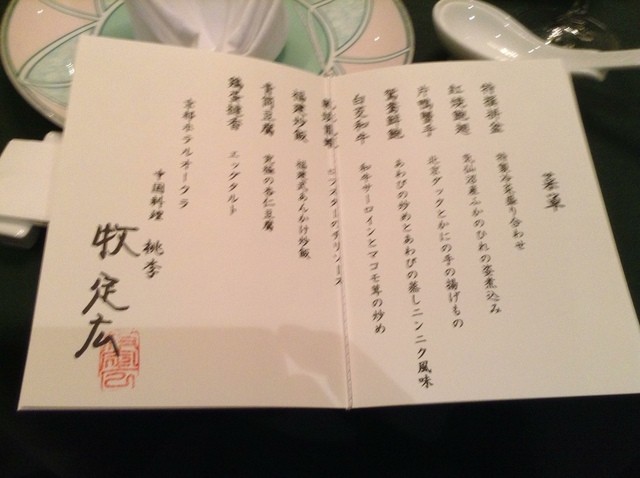 菜單
特撰拼盆 特製冷菜盛り合わせ
紅焼鮑翅 気仙沼産ふかのひれの姿煮込み
片鴨蟹手 北京ダックとかにの手の揚げもの
鴛鴦鮮鮑 あわびの炒めとあわびの蒸しニンニク風味
白茭和牛 和牛サーロインとマコモ茸の炒め
ロブスターのチリソース
福建炒飯 福建式あんかけ炒飯
杏仁豆腐 究極の杏仁豆腐
鶏蛋撻香 エッグタルト
京都ホテルオークラ
中国料理 桃李
牧定広